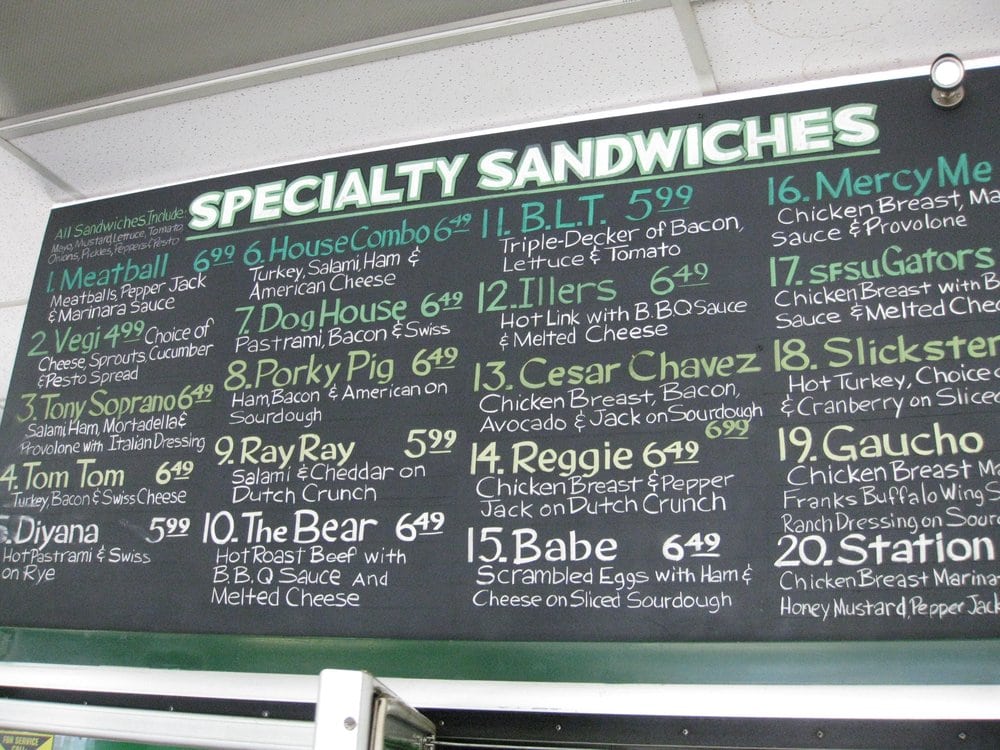 SPECIALTY SANDWICHES
All Sandwiches Include:
Mayo, Mustard, Lettuce, Tomato,
Onions, Pickles, Peppers & Pesto
1. Meatball 6.99
Meatballs, Pepper Jack
& Marinara Sauce
2. Vegi 4.99 Choice of
Cheese, Sprouts, Cucumber
& Pesto Spread
3. Tony Soprano 6.49
Salami, Ham, Mortadella &
Provolone with Italian Dressing
4. Tom Tom 6.49
Turkey, Bacon & Swiss Cheese
5. Diyana 5.99
Hot Pastrami & Swiss
on Rye
6. House Combo 6.49
Turkey, Salami, Ham &
American Cheese
7. Dog House 6.49
Pastrami, Bacon & Swiss
8. Porky Pig 6.49
Ham, Bacon & American on
Sourdough
9. Ray Ray 5.99
Salami & Cheddar on
Dutch Crunch
10. The Bear 6.49
Hot Roast Beef with
B.B.Q Sauce And
Melted Cheese
11. B.L.T. 5.99
Triple-Decker of Bacon,
Lettuce & Tomato
12. Illers 6.49
Hot Link with B.B.Q Sauce
& Melted Cheese
13. Cesar Chavez
Chicken Breast, Bacon,
Avocado & Jack on Sourdough
6.99
14. Reggie 6.49
Chicken Breast & Pepper
Jack on Dutch Crunch
15. Babe 6.49
Scrambled Eggs with Ham &
Cheese on Sliced Sourdough
16. Mercy Me
Chicken Breast, Ma
Sauce & Provolone
17. SFSU Gators
Chicken Breast with B
Sauce & Melted Chee
18. Slickster
Hot Turkey, Choice
& Cranberry on Sliced
19. Gaucho
Chicken Breast Ma
Franks Buffalo Wing S
Ranch Dressing on Sour
20. Station
Chicken Breast Marina
Honey Mustard, Pepper Jack
FOR SERVICE
CALL